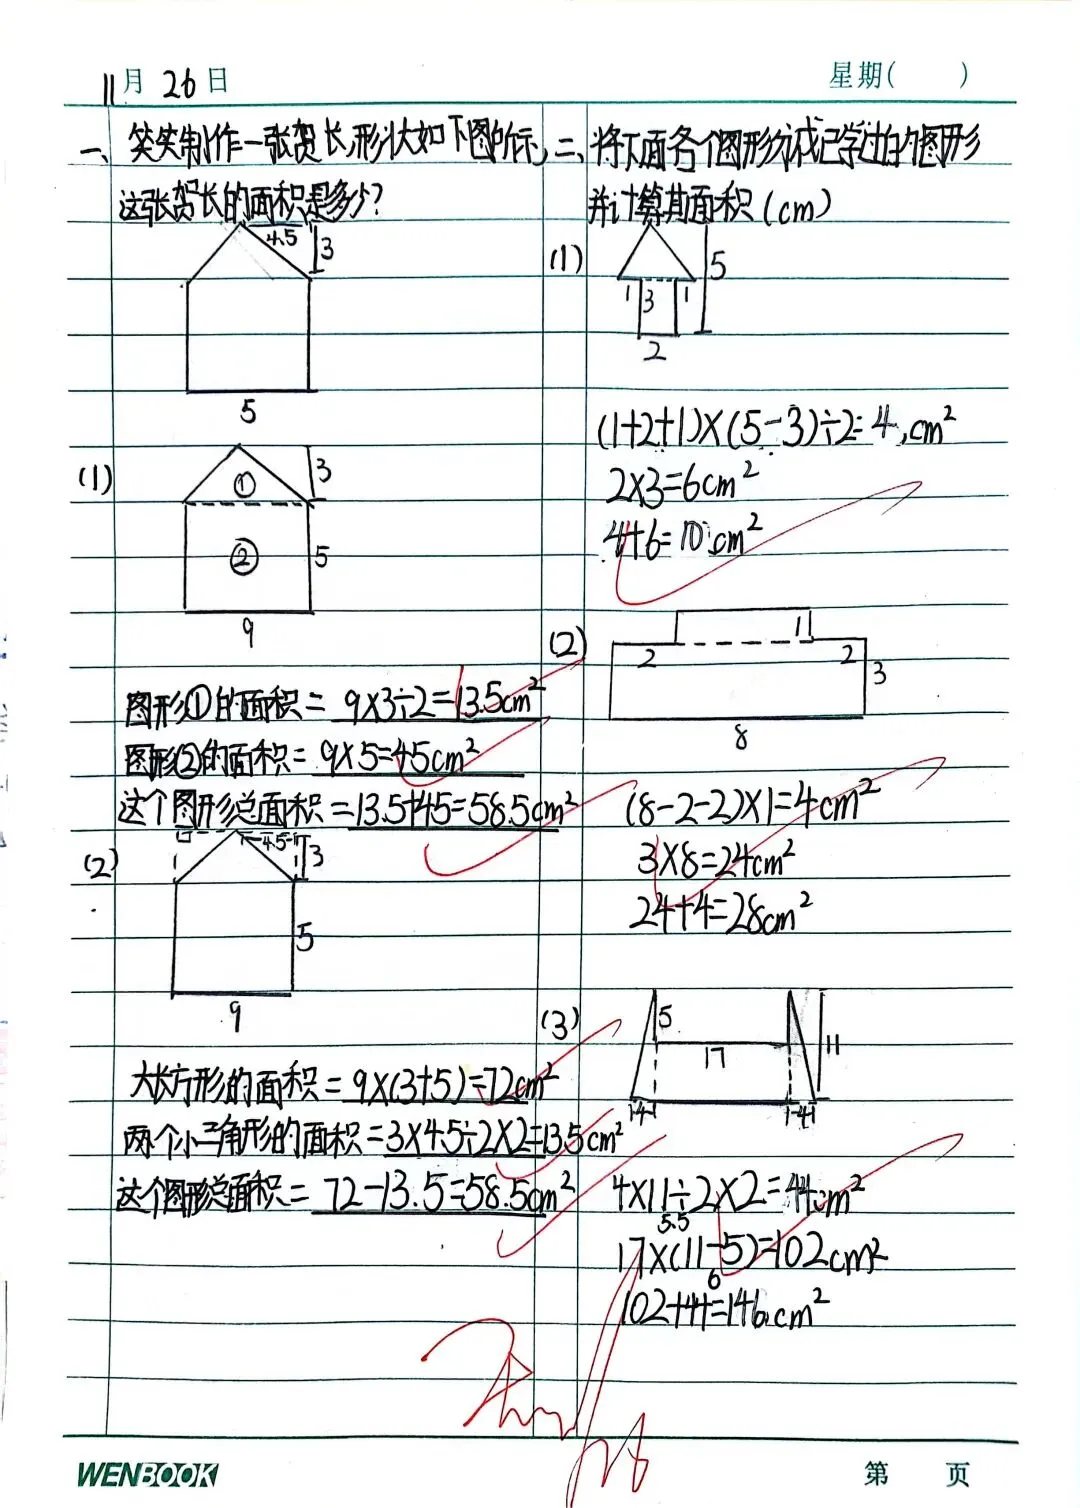 11月26日
星期( )
一、笑笑制作一张贺长,形状如下图所示,
这张贺长的面积是多少?
4.5
3
5
(1)
①
3
②
5
9
图形①的面积= 9×3÷2=13.5cm²
图形②的面积= 9×5=45cm²
这个图形总面积=13.5+45=58.5cm²
(2)
4.5
3
5
9
大长方形的面积= 9×(3+5)=72cm²
两个小三角形的面积=3×4.5÷2×2=13.5cm²
这个图形总面积= 72-13.5=58.5cm²
二、将下面各个图形分成已学过的图形
并计算其面积(cm)
(1)
5
1 3 1
2
(1+2+1)×(5-3)÷2=4cm²
2×3=6cm²
4+6=10cm²
(2)
1
2 2
3
8
(8-2-2)×1=4cm²
3×8=24cm²
24+4=28cm²
(3)
5
17
11
4 4
4×11÷2×2=44cm²
5.5
17×(11-5)=102cm²
6
102+44=146cm²
WENBOOK
第 页